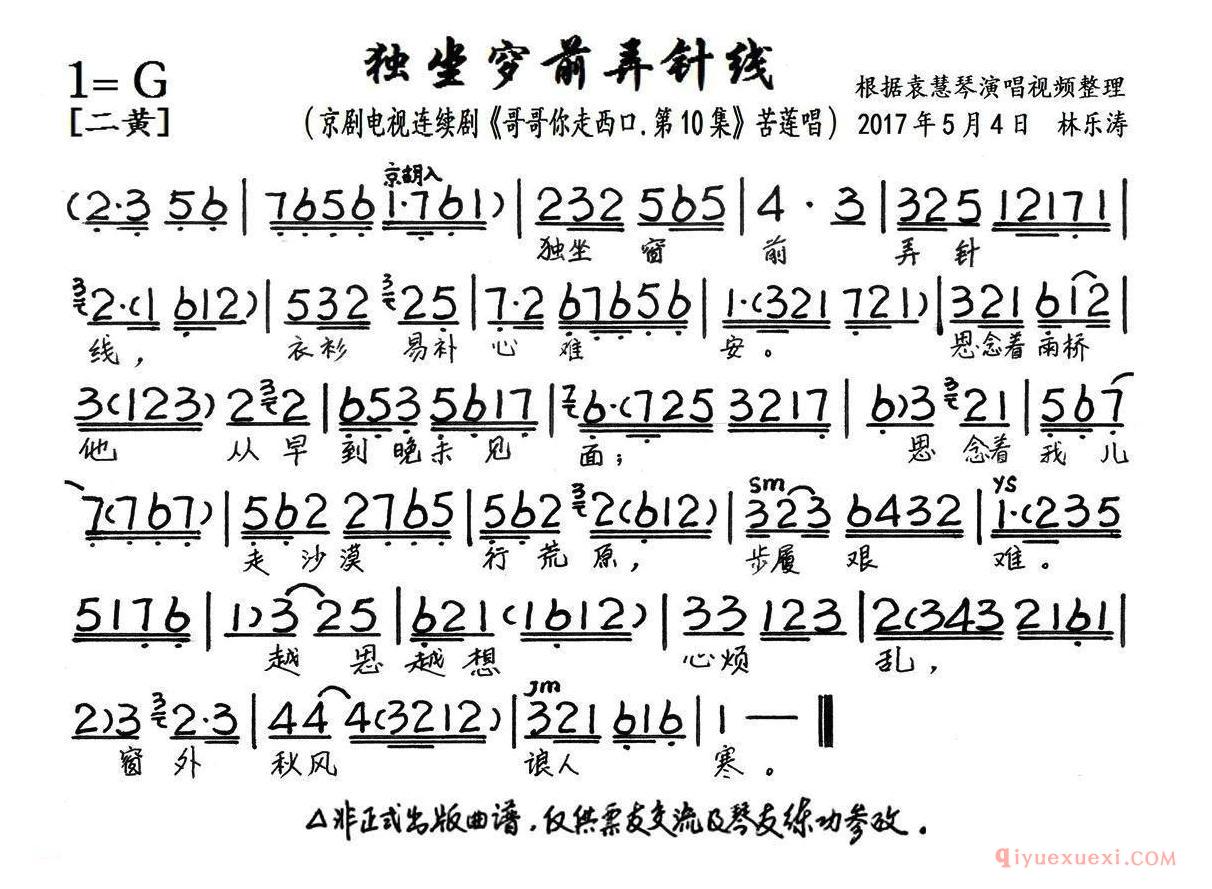 独坐窗前弄针线
1=G
[二黄]
(京剧电视连续剧《哥哥你走西口.第10集》苦莲唱)
根据袁慧琴演唱视频整理
2017年5月4日 林乐涛
京胡入
(2·3 56 | 7656 1·761) | 232 565 | 4 · 3 | 325 12171 |
独坐 窗 前 弄 针
3 2·(1 612) | 532 3 25 | 7·2 67656 | 1·(321 721) | 321 612 |
线, 衣衫 易补 心 难 安。 思念着雨桥
3(123) 2 3 2 | 653 5617 | 7 6·(725 3217 | 6)3 3 21 | 567
他 从早 到晚未见 面; 思 念着 我儿
sm ys
7(767) | 562 2765 | 562 3 2(612) | 323 6432 | 1·(235
走沙漠 行荒原, 步履 艰 难。
5176 | 1)3 25 | 621 (1612) | 33 123 | 2(343 2161 |
越 思 越想 心烦 乱,
jm
2)3 3 2·3 | 44 4(3212) | 321 616 | 1 — ‖
窗 外 秋风 浪人 寒。
△非正式出版曲谱,仅供票友交流及琴友练功参考.
qiyuexuexi.COM